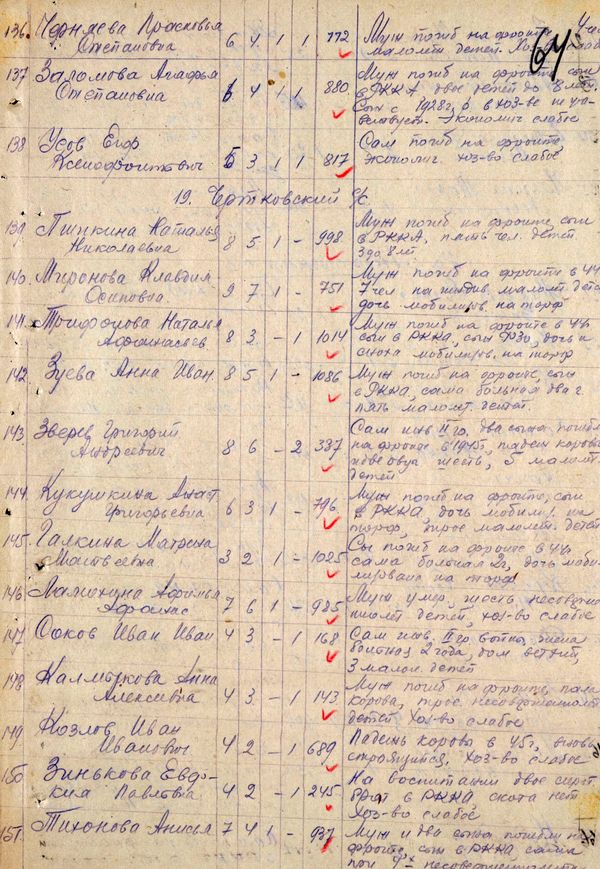 136. Черняева Прасковья 6 4 1 1 772 Муж погиб на фронте
Степановна малолетн детей.
64
137 Заломова Агафья 6 4 1 1 880 Муж погиб на фронте, сын
Степановна в РККА, двое детей до 8 лет.
Сын с 1928 г. р в хоз-ве не уча-
вствует. Экономич слабое
138 Усов Егор 5 3 1 1 817 Сам погиб на фронте,
Ксенофонтович экономич. хоз-во слабое
19. Чертковский с/с.
139 Пипкина Наталья 8 5 1 - 998 Муж погиб на фронте, сын
Николаевна в РККА, пять чел. детей
3 до 8 лет
140. Миронова Клавдия 9 7 1 - 751 Муж погиб на фронте в 44
Осиповна. 7 чел на иждив малолет дети
дочь мобилизов. на торф
141. Трифонова Наталья 8 3 - 1 1014 Муж погиб на фронте в 44
Афанасьев сын в РККА, сын ФЗО, дочь и
сноха мобилизов. на торф
142 Зуева Анна Иван. 8 5 1 - 1086 Муж погиб на фронте, сын
в РККА, сама больная два г.
пять малолет. детей.
143. Зверев Григорий 8 6 - 2 337 Сам инв II гр. два сына погибли
Андреевич на фронте в 1945, падеж коровы
овец шесть, 5 малолет.
детей
144 Кукушкина Анаст 6 3 1 - 796 Муж погиб на фронте, сын
Григорьевна в РККА, дочь мобилиз. на
торф, трое малолетн. детей
145. Галкина Матрена 3 2 1 - 1025 Сын погиб на фронте в 44
Матвеевна сама больная 2 г, дочь моби-
лизована на торф
146 Афимья 7 6 1 - 985 Муж умер, шесть несоверше
Афанас ннолет детей, хоз-во слабое
147 Соков Иван Иван 4 3 - 1 168 Сам инв. II гр. войны, жена
больная 2 года, дом ветхий,
3 малол. детей
148 Калмыкова Анна 4 3 - 1 143 Муж погиб на фронте, пала
Алексевна корова, трое несовершеннолет
детей Хоз-во слабое
149 Козлов Иван 4 2 - 1 689 Падеж коровы в 45 г, вновь
Иванович строящийся, хоз-во слабое
150 Зинькова Евдо- 4 2 - 1 245 На воспитании двое сирот
кия Павловна брат в РККА, скота нет
Хоз-во слабое
151. Тихонова Анисья 7 4 1 - 937 Муж и два сына погибли на
фронте, сын в РККА, сама
при 4-х несовершеннолетн